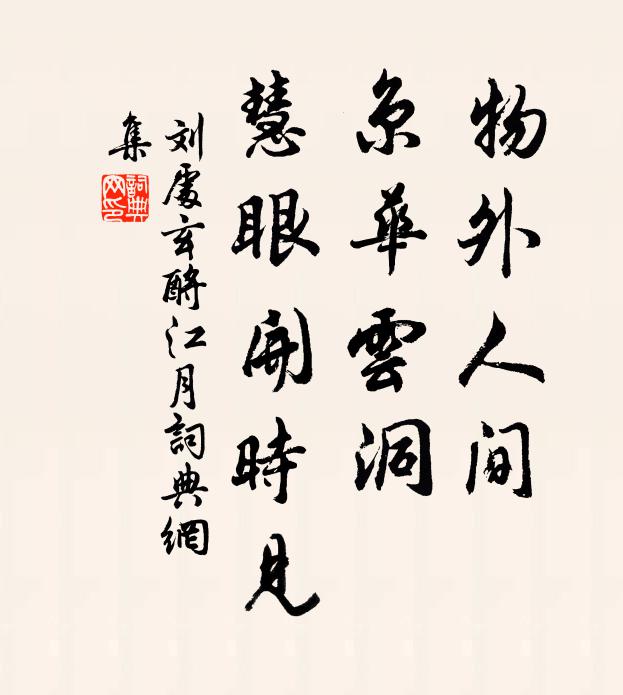 物外人间
京華雲洞
慧眼開時見
刘處玄酹江月詞典網
集
詞典
网印